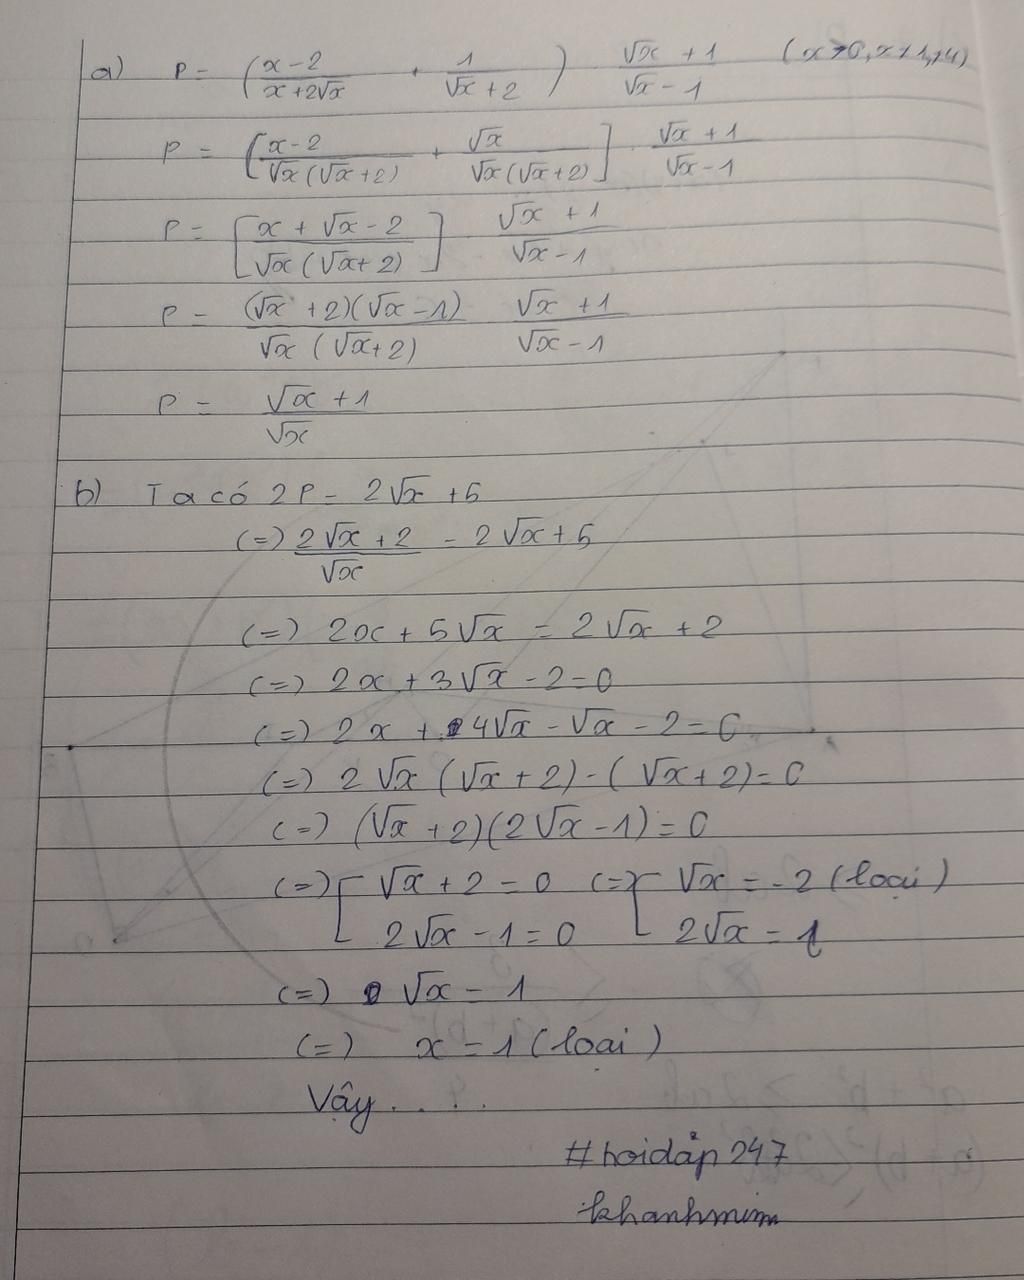 a) P = (x-2/x+2√x + 1/√x+2) √x+1/√x-1 (x>0, x≠1, ≠4)
P = [x-2/√x(√x+2) + √x/√x(√x+2)] . √x+1/√x-1
P = [x+√x-2/√x(√x+2)] √x+1/√x-1
P = (√x+2)(√x-1)/√x(√x+2) √x+1/√x-1
P = √x+1/√x
b) Ta có 2P = 2√x+5
(=) 2√x+2/√x = 2√x+5
(=) 2x+5√x = 2√x+2
(=) 2x+3√x-2=0
(=) 2x+4√x-√x-2=0
(=) 2√x(√x+2)-(√x+2)=0
(=) (√x+2)(2√x-1)=0
(=) [ √x+2=0 (=) [ √x=-2 (loại)
2√x-1=0 2√x=1
(=) √x=1
(=) x=1 (loại)
Vậy....
#hoidáp247
khanhmim